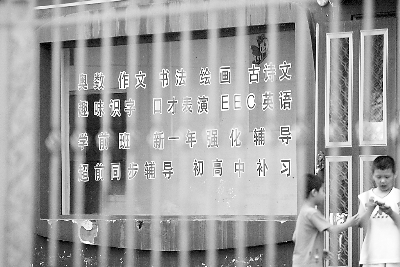 奥数 作文 书法 绘画 古诗文
趣味识字 口才表演 EEC英语
学前班 新一年强化辅导
超前同步辅导 初高中补习